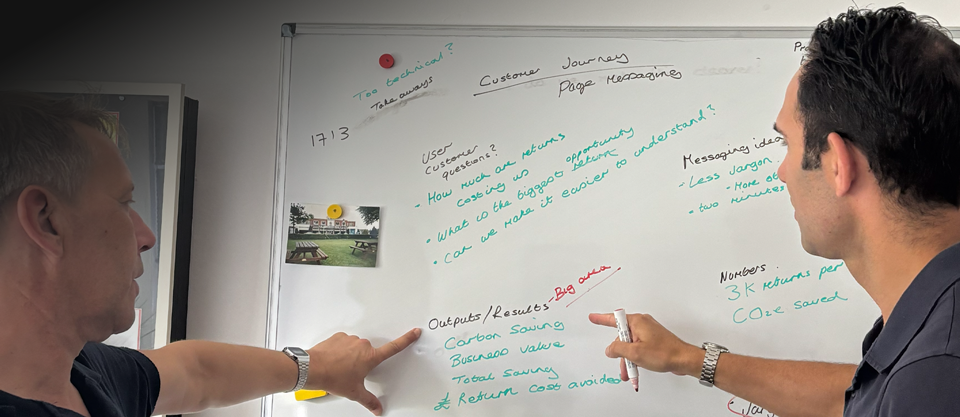 Too technical?
Take aways
Customer Journey
Page Messaging
Pro
1713
User
Customer
questions?
- How much are returns
costing us
• What is the biggest return opportunity
• Can we make it easier to understand?
Messaging idea
- Less Jargon
- More
• two minutes
Numbers
3K returns per
CO2e saved
Outputs/Results - Big area
Carbon Saving
Business value
Total Saving
£ Return cost avoided